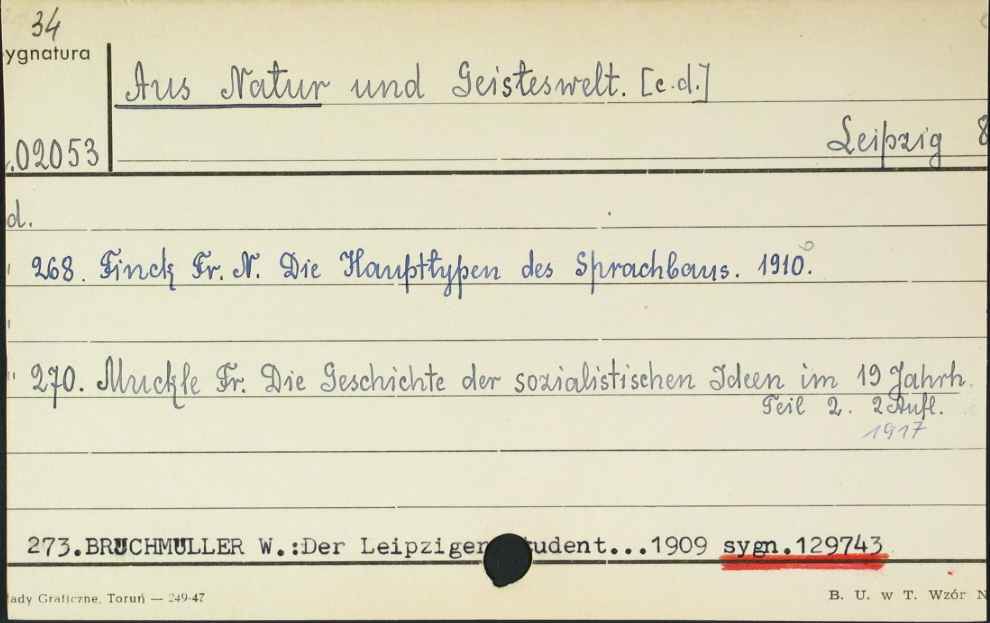 34
ygnatura
Aus Natur und Geisteswelt. [c.d.]
.02053
Leipzig 8
d.
268. Finck Fr. N. Die Haupttypen des Sprachbaus. 1910.
270. Muckle Fr. Die Geschichte der sozialistischen Ideen im 19 Jahrh.
Teil 2. 2 Aufl.
1917
273.BRUCHMULLER W.:Der Leipziger udent...1909 sygn.129743
łady Graficzne, Toruń — 249-47
B. U. w T. Wzór N